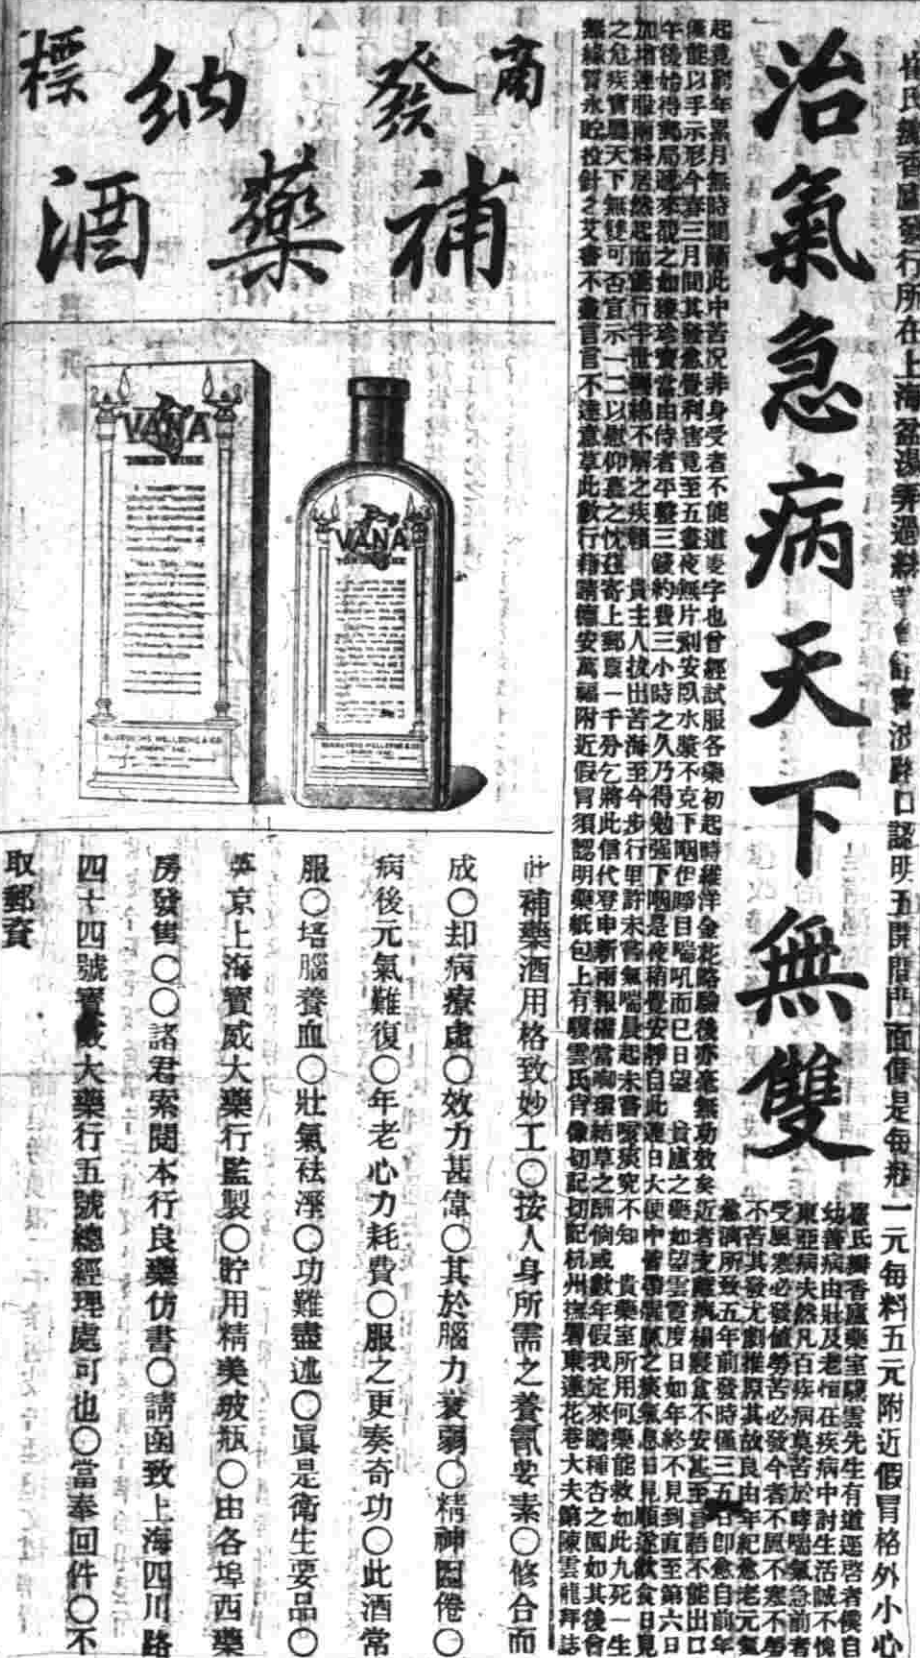 氏瓣香廬藥行所在上海盆湯弄過寧波路口認明五開間門面便是每料一元每料五元附近假冒格外小心
治氣急病天下無雙
崔氏瓣香廬藥室驥雲先生有道逕啓者僕自
幼善病由壯及老恒在疾病中討生活誠不愧
東亞病夫然凡百疾病莫苦於哮喘氣急前者
受風寒必發値勞苦必發今者不風不寒不勞
不苦其發尤劇推原其故良由年紀愈老元氣
愈漓所致五年前發時僅三五日卽愈自前年
起竟窮年累月無時間隔此中苦况非身受者不能道隻字也曾經試服各藥初起時雖洋金花略驗後亦毫無功效矣近者支離病榻寢食不安甚至言語不能出口
僅能以手示形今春三月間其發愈覺利害竟至五晝夜無片刻安臥水漿不克下咽但睜目喘吼而已日望 貴廬之藥如望雲霓度日如年終不見到直至第六日
午後始得郵局遞來覩之如獲珍寶當由侍者平鑿三錢約費三小時之久乃得勉强下咽是夜稍覺安靜自此連日大便中皆帶膩之痰氣息日見順遂飲食日見
加增連服兩料居然起而能行半世纏綿不解之疾頓 貴主人拔出苦海至今步行里許未嘗氣喘晨起未嘗嗽痰究不知 貴藥室所用何藥能救如此九死一生
之危疾實屬天下無雙可否宣示一二以慰仰慕之忱玆寄上郵票一千分乞將此信代登申新兩報確當啣環結草之酬倘或數年假我定來瞻種杏之園如其後會
無緣當永貯投針之艾書不盡言言不達意草此數行藉請德安萬福附近假冒須認明藥紙包上有驥雲氏肖像切記切記杭州撫署東蓮花巷大夫第陳雲龍拜誌
商標
發納
補藥酒
VANA
TONIC WINE
BURROUGHS WELLCOME & CO.
VANA
TONIC WINE
BURROUGHS WELLCOME & CO.
此補藥酒用格致妙工〇按人身所需之養氣要素〇修合而
成〇却病療虛〇效力甚偉〇其於腦力衰弱〇精神困倦〇
病後元氣難復〇年老心力耗費〇服之更奏奇功〇此酒常
服〇培腦養血〇壯氣袪溼〇功難盡述〇眞是衛生要品〇
英京上海寳威大藥行監製〇貯用精美玻瓶〇由各埠西藥
房發售〇〇諸君索閱本行良藥仿書〇請函致上海四川路
四十四號寳威大藥行五號總經理處可也〇當奉回件〇不
取郵資